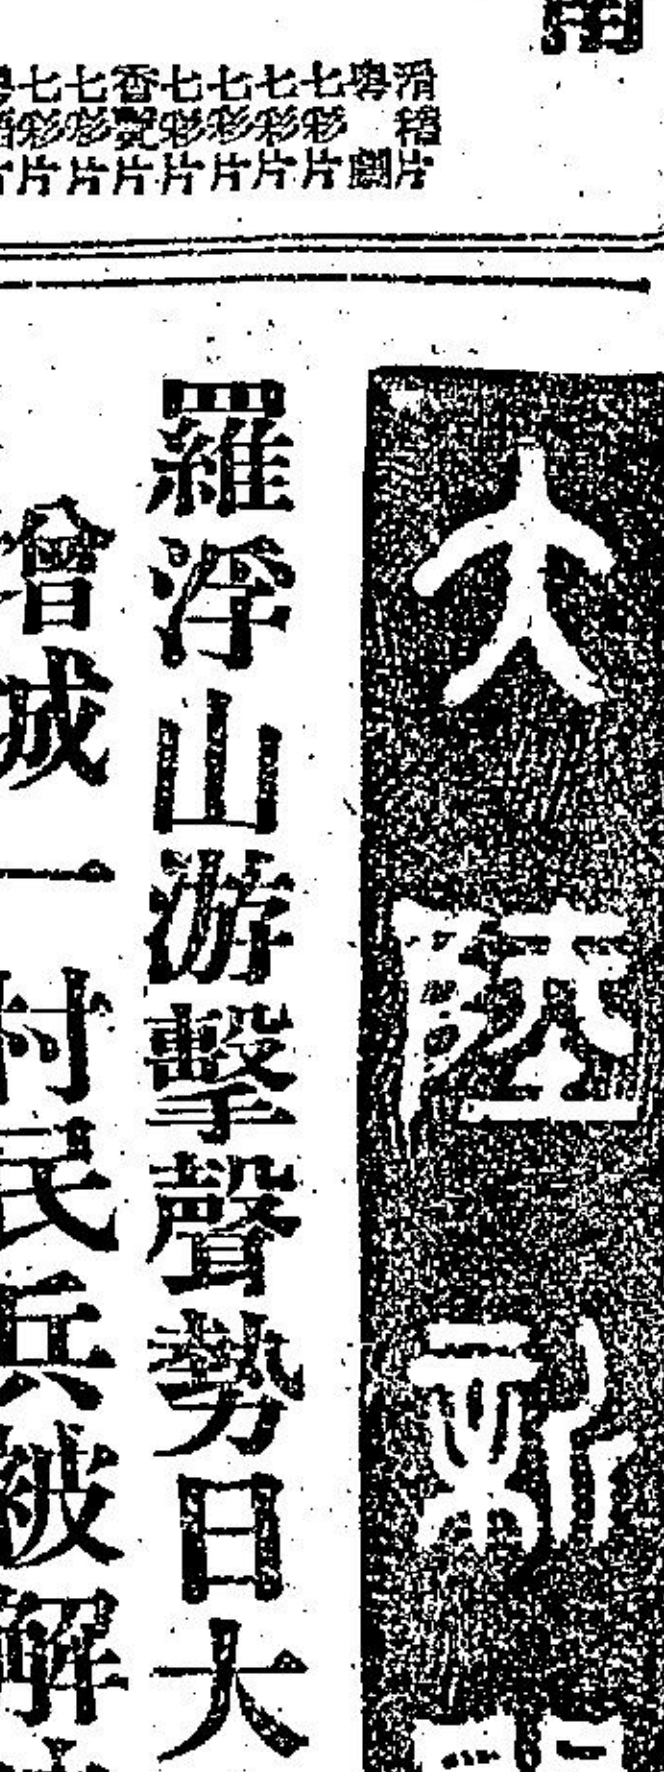 滑稽片
粵劇
七彩片
七彩片
七彩片
七彩片
香艷片
七彩片
七彩片
大陸新
羅浮山游擊聲勢日大
增城一村民兵被解